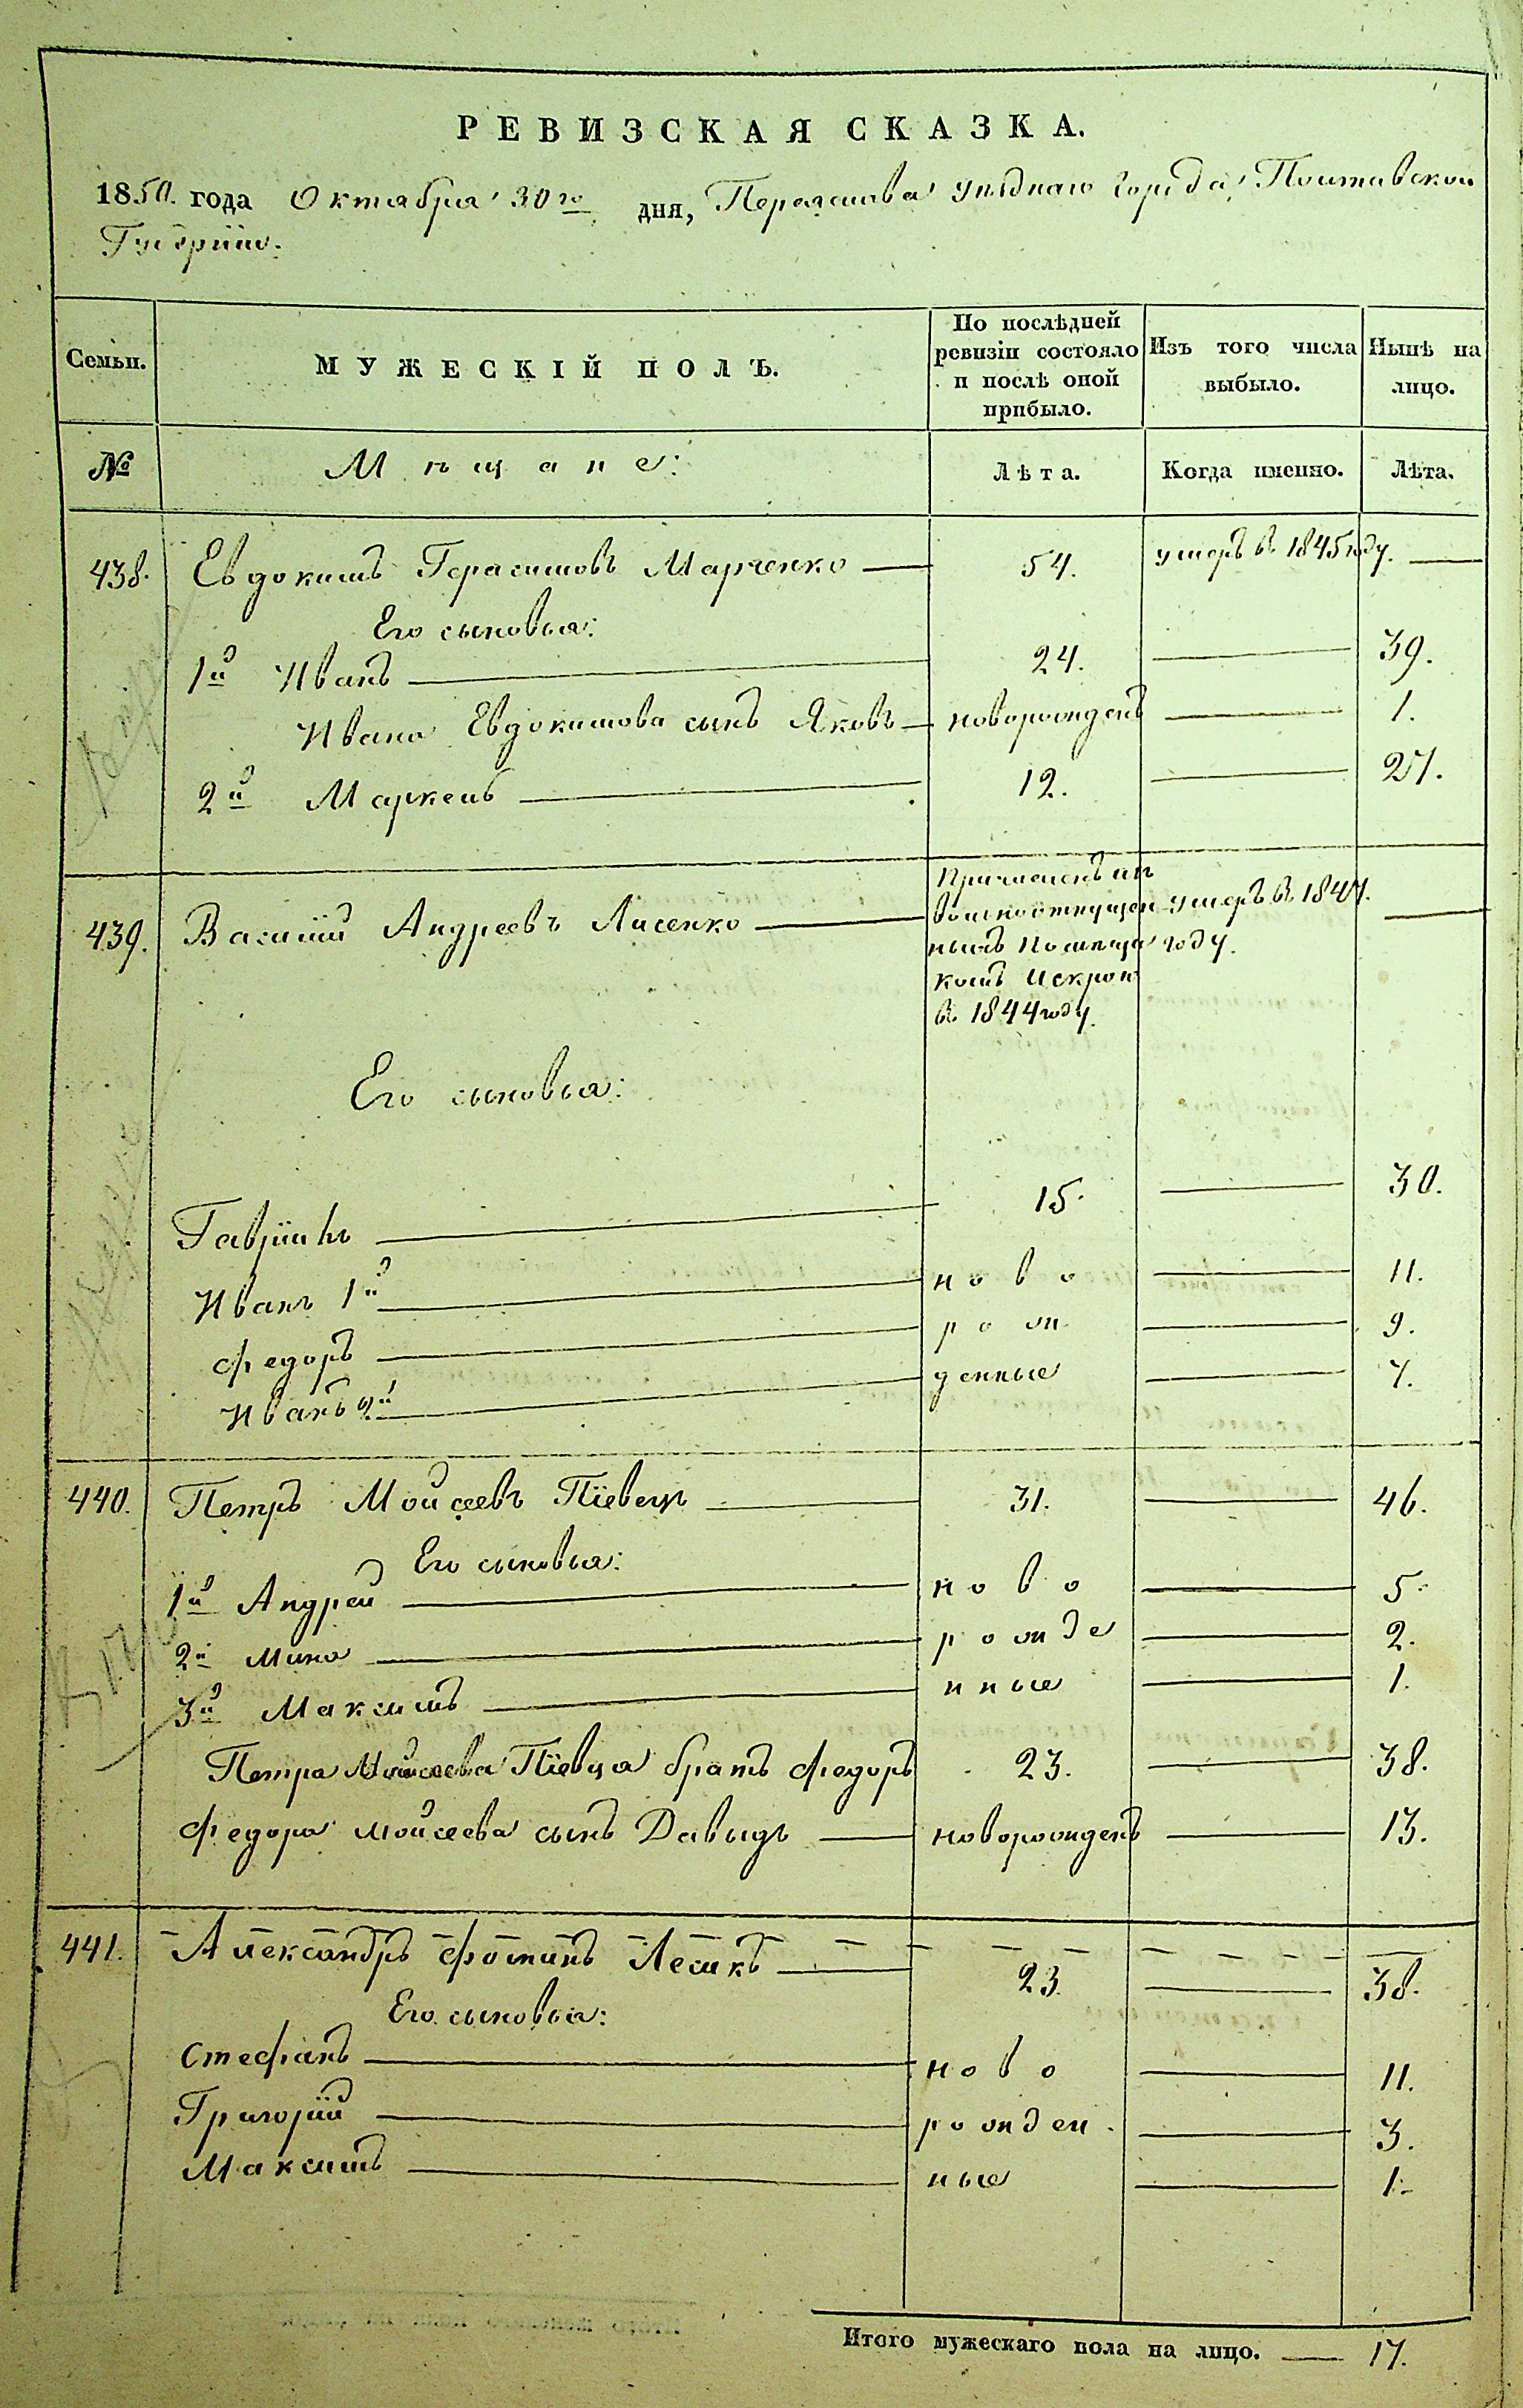 РЕВИЗСКАЯ СКАЗКА.
1850. года Октября 30го дня, Переяслава уѣзднаго города, Полтавской
Губерніи.
Семьи. МУЖЕСКІЙ ПОЛЪ. По послѣдней ревизіи состояло и послѣ оной прибыло. Изъ того числа выбыло. Нынѣ на лицо.
№ Мѣщане: Лѣта. Когда именно. Лѣта.
438. Евдокимъ Герасимовъ Марченко — 54. умеръ въ 1845 году. —
Его сыновья:
1й Иванъ — 24. — 39.
Ивана Евдокимова сынъ Яковъ — новорожденъ — 1.
2й Маркелъ — 12. — 27.
439. Василій Андреевъ Лисенко — Причисленъ изъ вольноотпущенныхъ помѣщикомъ Искрою въ 1844 году. умеръ въ 1847. году. —
Его сыновья:
Гавріилъ — 15. — 30.
Иванъ 1й — ново — 11.
Федоръ — рож — 9.
Иванъ 2й — денные — 7.
440. Петръ Мойсеевъ Піевецъ — 31. — 46.
Его сыновья:
1й Андрей — ново — 5.
2й Мина — рожде — 2.
3й Максимъ — нные — 1.
Петра Мойсеева Піевца братъ Федоръ 23. — 38.
Федора Мойсеева сынъ Давыдъ — новорожденъ — 13.
441. Александръ Фоминъ — 23. — 38.
Его сыновья:
Стефанъ — ново — 11.
Григорій — рожден — 3.
Максимъ — ные — 1.
Итого мужескаго пола на лицо. — 17.